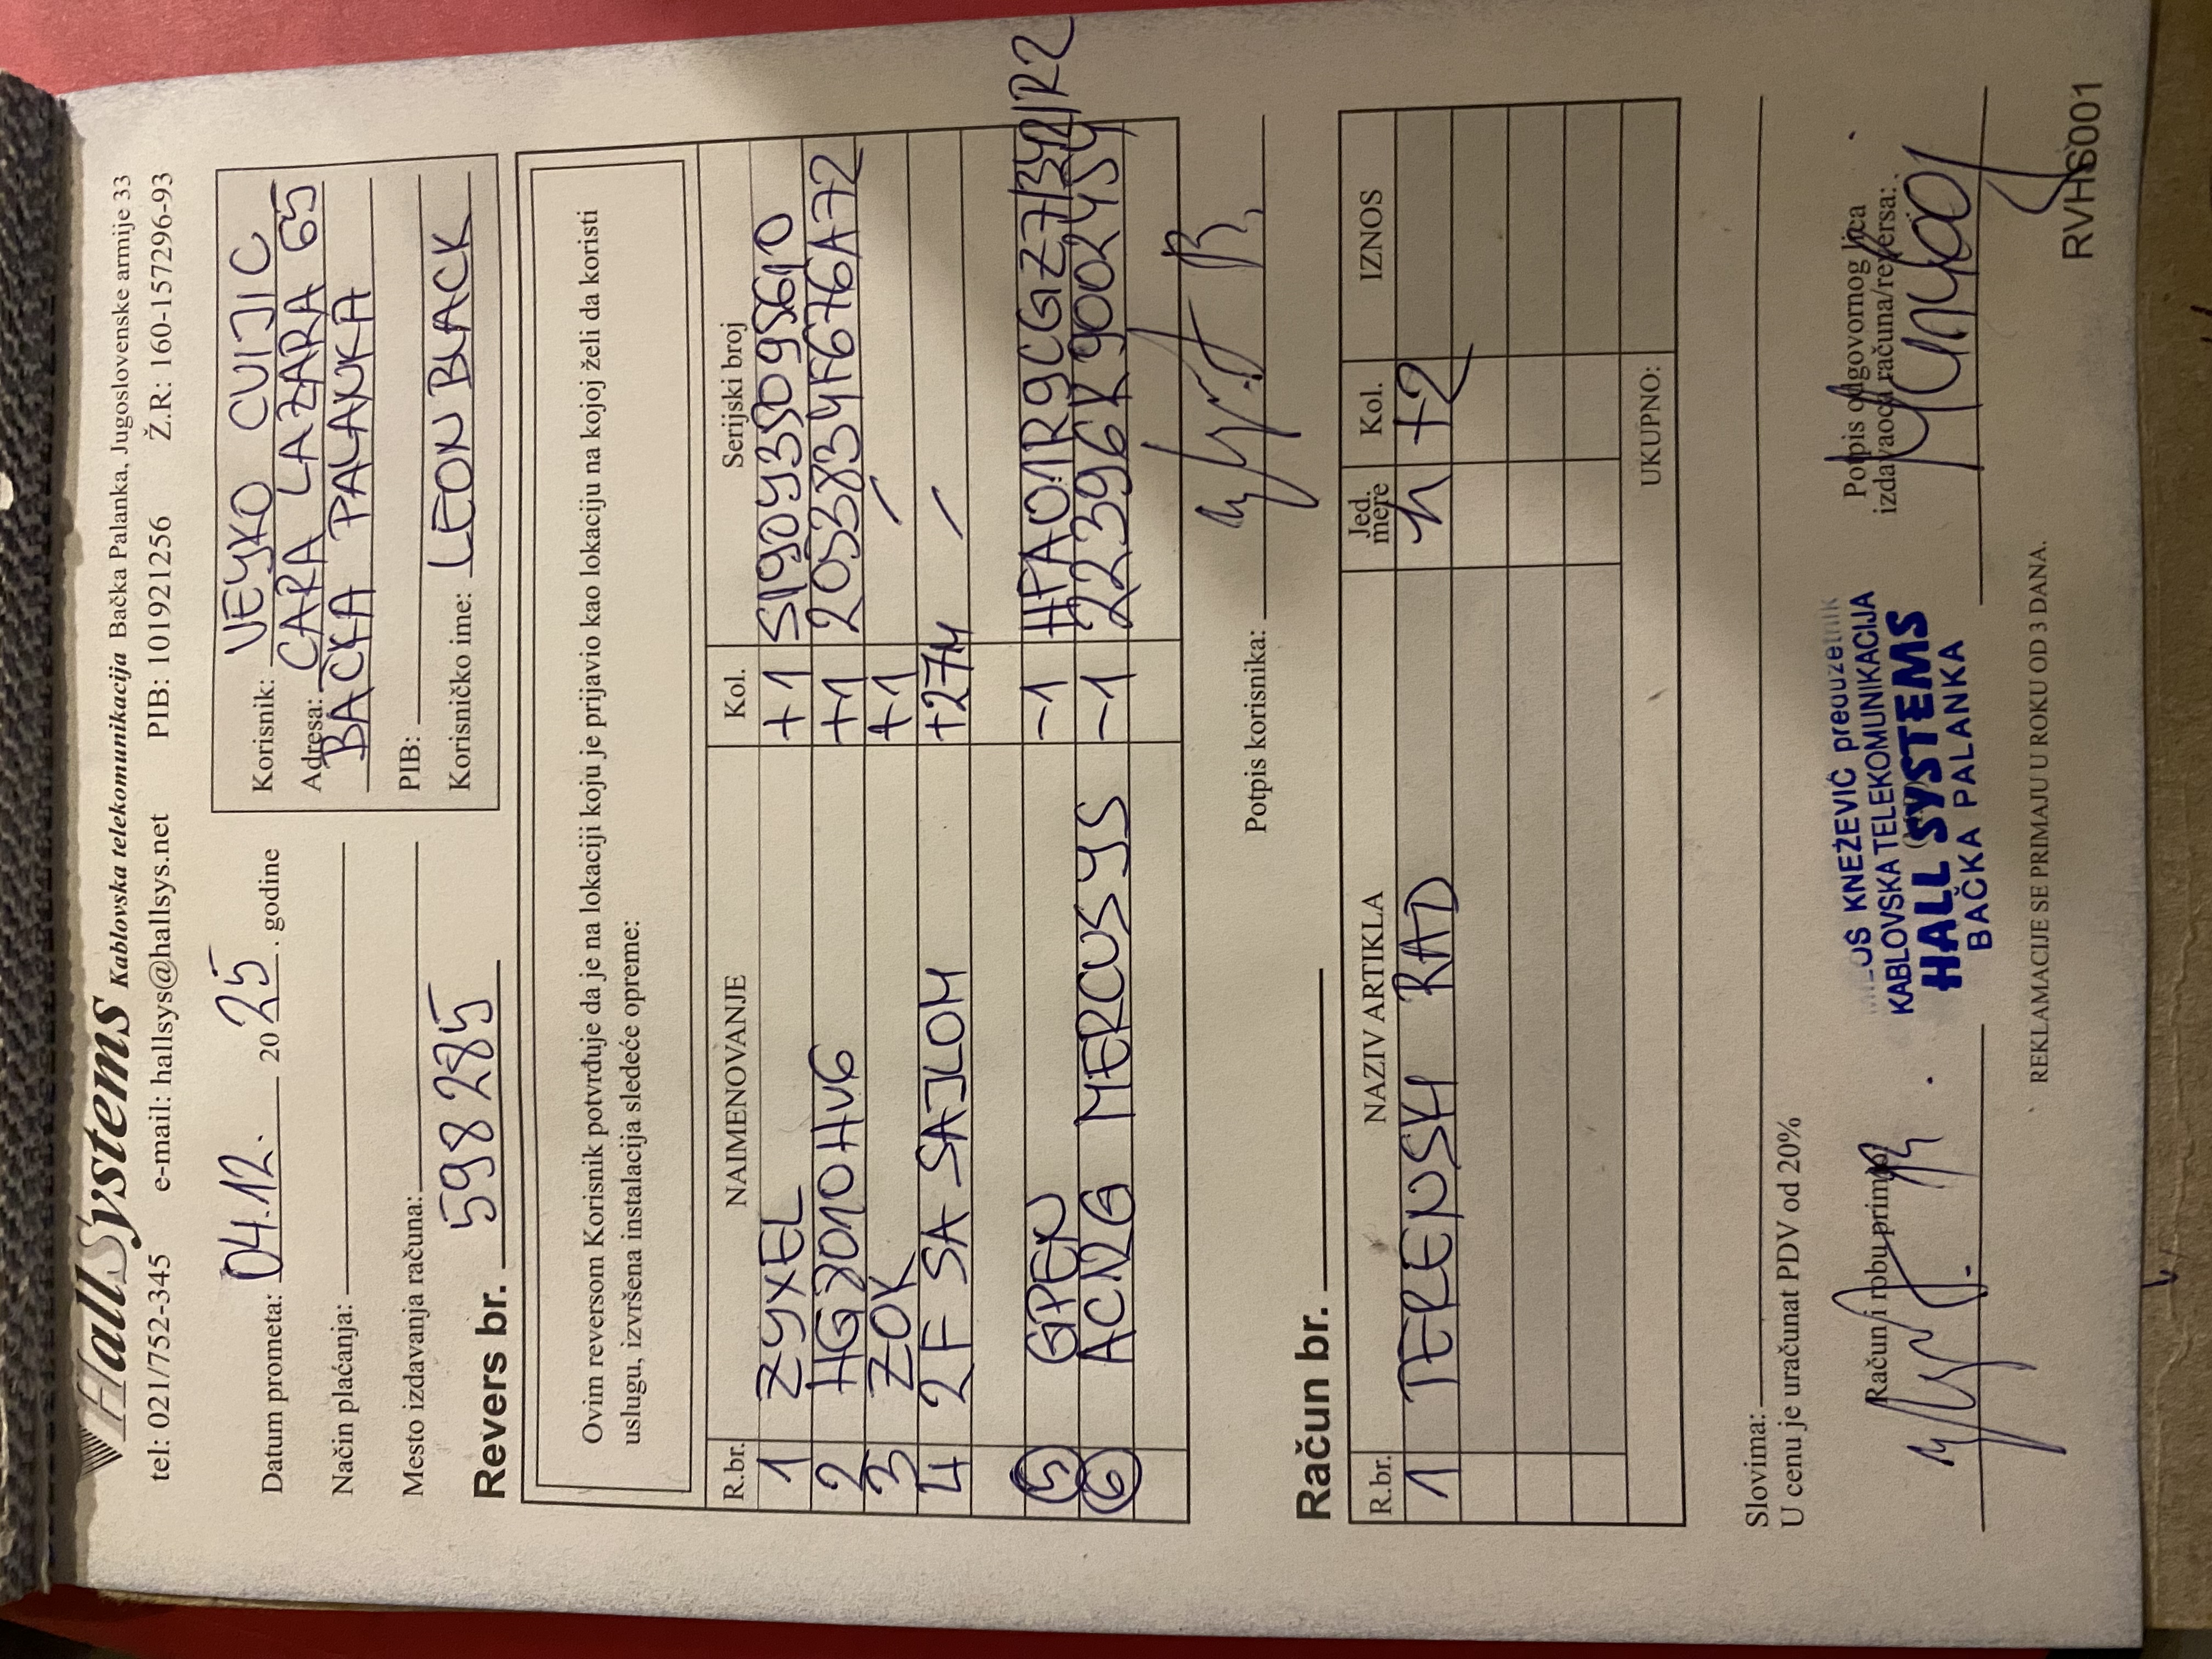 HallSystems Kablovska telekomunikacija Bačka Palanka, Jugoslovenske armije 33
tel: 021/752-345 e-mail: hallsys@hallsys.net PIB: 101921256 Ž.R.: 160-157296-93
Datum prometa: 04.12. 2025. godine
Način plaćanja:
Mesto izdavanja računa:
Revers br. 598285
Korisnik: VEYKO CUIJIC
Adresa: CARA LAZARA 65
BACKA PALANKA
PIB:
Korisničko ime: LEON BLACK
Ovim reversom Korisnik potvrđuje da je na lokaciji koju je prijavio kao lokaciju na kojoj želi da koristi
uslugu, izvršena instalacija sledeće opreme:
R.br. NAIMENOVANJE Kol. Serijski broj
1 ZYXEL +1 S190Y35095610
2 HG8010HV6 +1 2053834F676A72
3 ZOK +1 /
4 2F SA SAJLOM +27M /
5 GPEN -1 HFA01R9CGZ7/341R2
6 AC12G MERCUSYS -1 22396K9002454
Potpis korisnika:
Račun br.
R.br. NAZIV ARTIKLA Jed. mere Kol. IZNOS
1 TERENSKI RAD h +2
UKUPNO:
Slovima:
U cenu je uračunat PDV od 20%
Račun i robu primio:
KNEŽEVIĆ preduzetnik
KABLOVSKA TELEKOMUNIKACIJA
HALL SYSTEMS
BAČKA PALANKA
Potpis odgovornog lica
izdavaoca računa/reversa:
REKLAMACIJE SE PRIMAJU U ROKU OD 3 DANA.
RVHS001